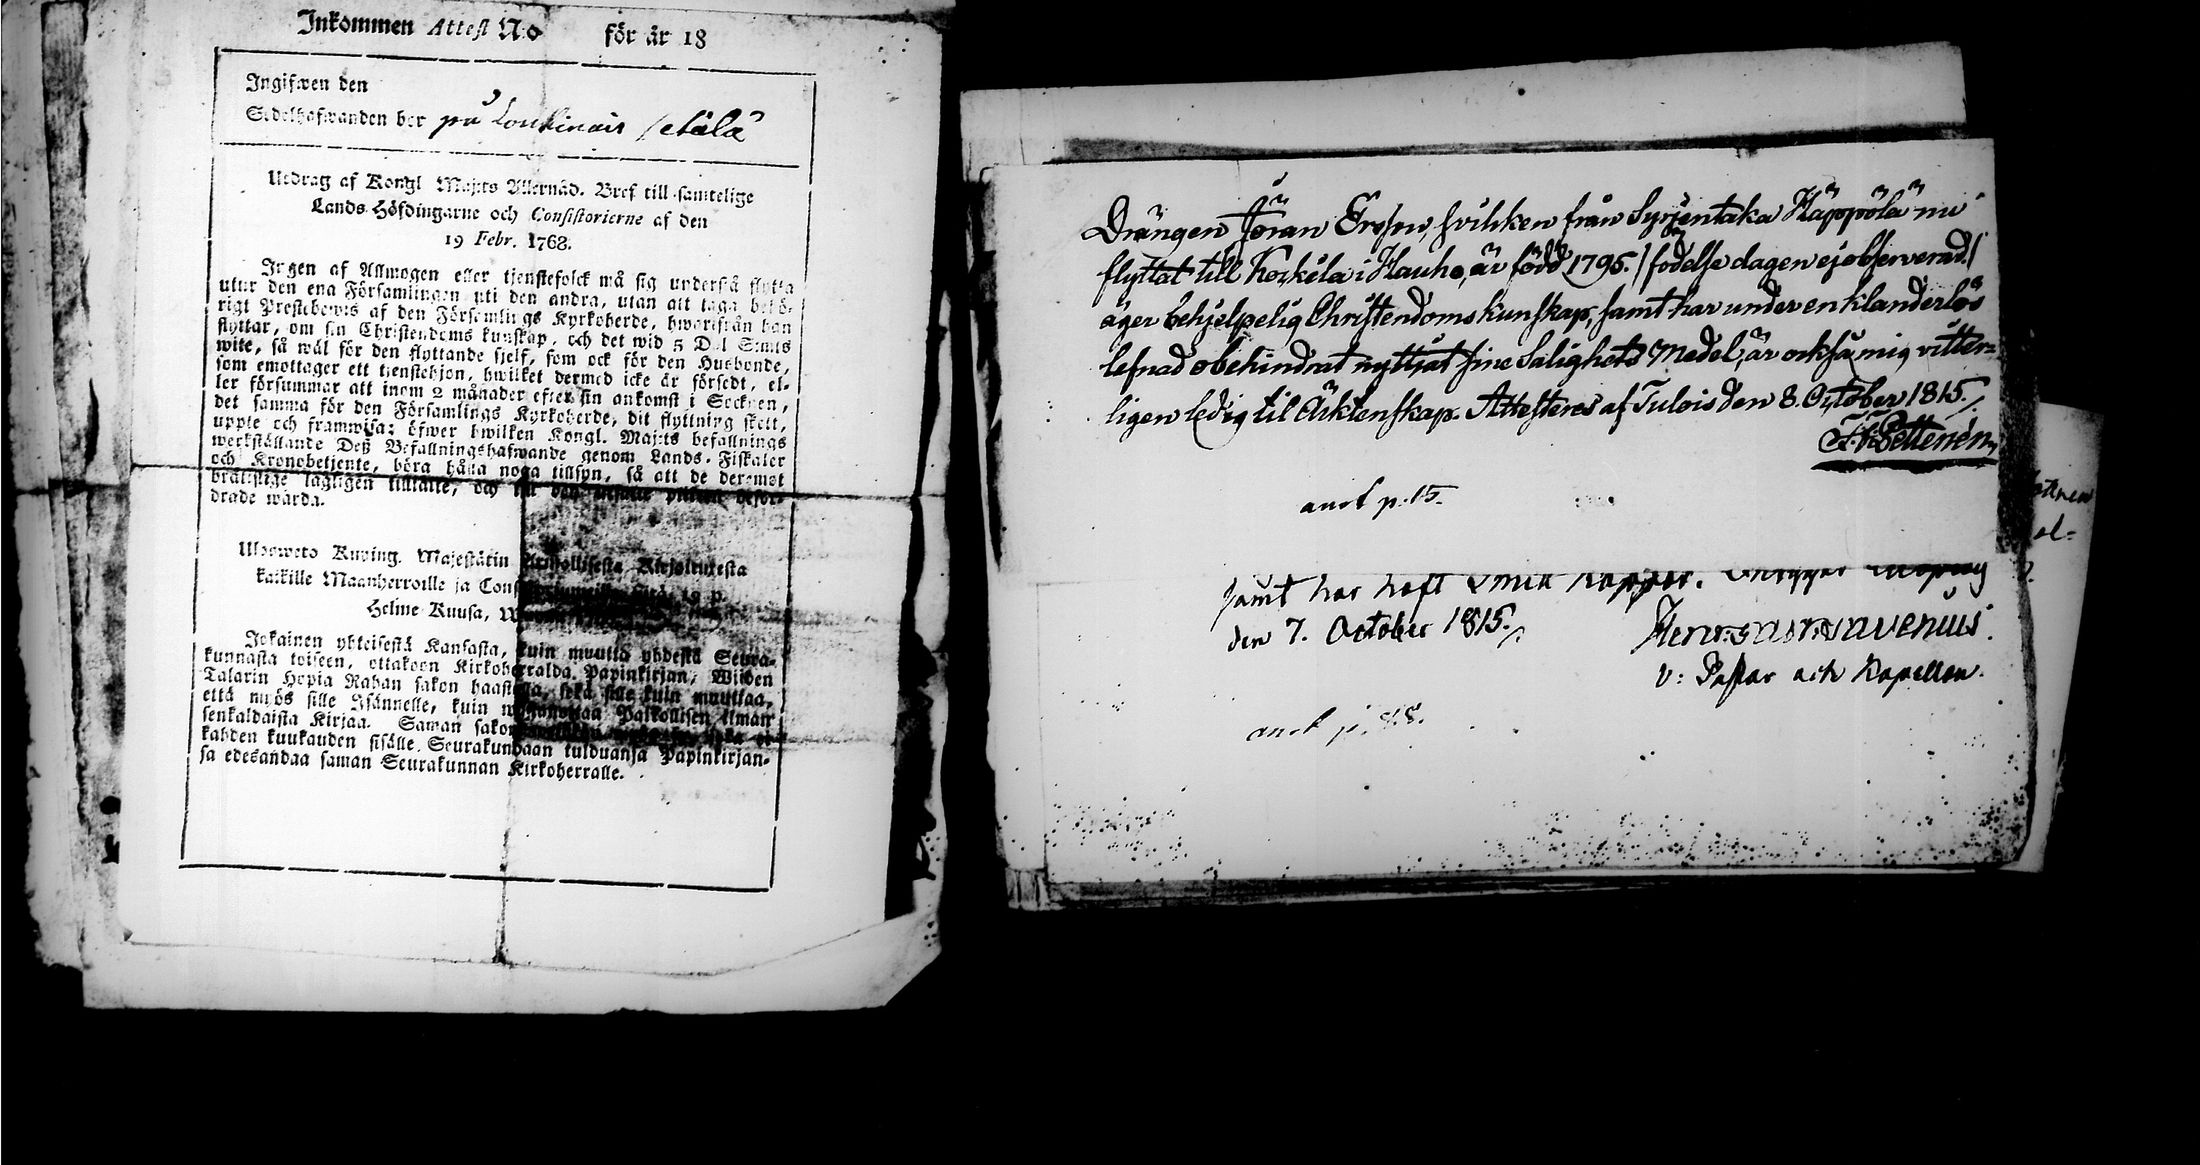 Inkommen Attest N:o för år 18
Ingifwen den
Sedelhafwanden bor på
Utdrag af Kongl Maj:ts Allernåd. Bref till samtelige
Lands-Höfdingarne och Consistorierne af den
19 Febr. 1768.
Ingen af Allmogen eller tjenstefolck må sig understå flytta
utur den ena Församlingen uti den andra, utan att taga behö-
rigt Prestebewis af den Församlings Kyrkoherde, hwarifrån han
flyttar, om sin Christendoms kunskap, och det wid 5 Dal S:mts
wite, så wäl för den flyttande sjelf, som ock för den Husbonde,
som emottager ett tjenstehjon, hwilket dermed icke är försedt, el-
ler försummar att inom 2 månader efter sin ankomst i Socknen,
det samma för den Församlings Kyrkoherde, dit flyttning skett,
uppte och framwisa: öfwer hwilken Kongl. Maj:ts befallnings
werkställande Deß Befallningshafwande genom Lands-Fiskaler
och Kronobetjente, böra hålla noga tillsyn, så att de deremot
brottslige lagligen tilltalte, och till
drade warda.
Ulosweto Kuning. Majestätin Armollisesta Kirjoituxesta
kaikille Maanherroille ja 19 p.
Helme Kuusa,
Jokainen yhteisestä Kansasta, kuin muutta yhdestä Seura-
kunnasta toiseen, ottakoon Kirkoherralda Papinkirjan, Wiiden
Talarin Hopia Rahan sakon haastolla, sekä sille kuin muuttaa,
että myös sille Isännelle, kuin Palkollisen ilman
senkaldaista Kirjaa. Saman sakon
kahden kuukauden sisälle Seurakundaan tulduansa Papinkirjan-
sa edesandaa saman Seurakunnan Kirkoherralle.
Drängen Jöran Ersson, hvilken från Syrjentaka Häppölä nu
flyttat till Kockila i Hauho, är född 1795. / födelse dagen ej observerad. /
äger behjelpelig Christendoms kunskap, samt har under en klanderlös
lefnad obehindrat nyttjat sine Salighets Medel, är också mig vitter-
ligen ledig til Äktenskap. Attesteres af Tulois den 8. October 1815.
Pettenén
anot p. 15.
samt har haft
den 7. October 1815.
v: Pastor och Kapellan.
anot p. 88.